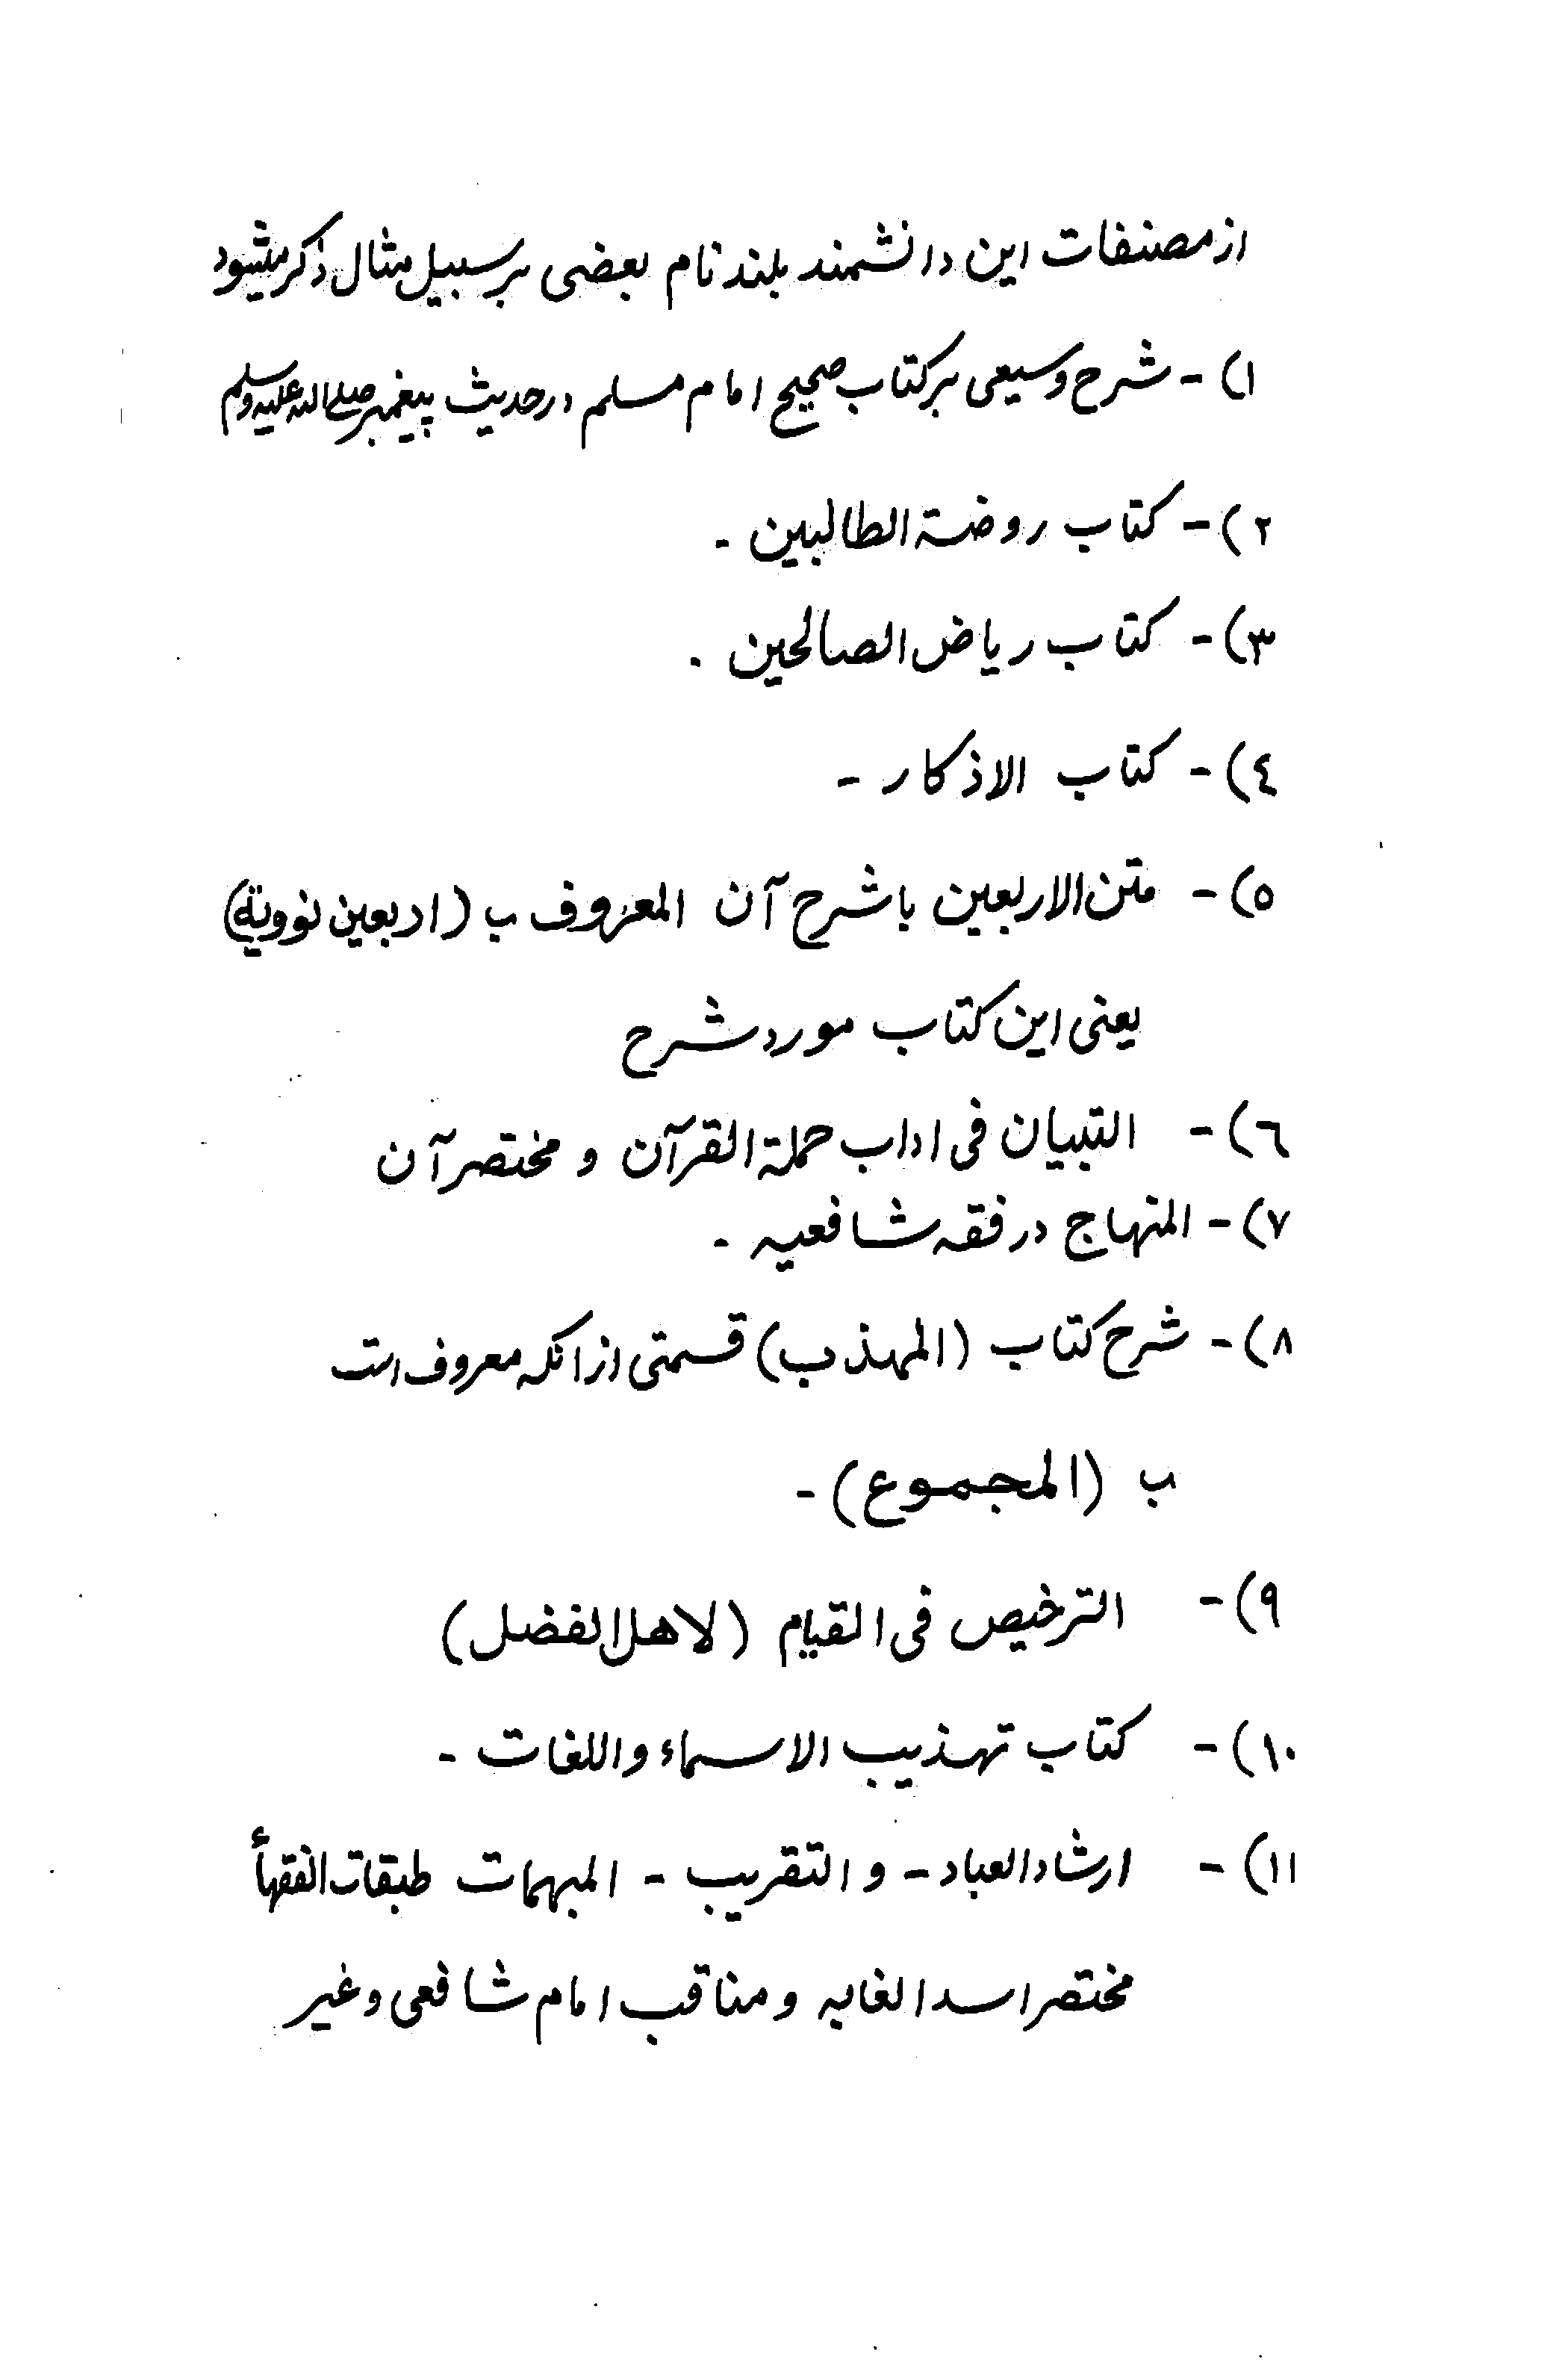 از مصنفات این دانشمند بلند نام بعضی بر سبیل مثال ذکر میشود
۱) - شرح وسیعی بر کتاب صحیح امام مسلم در حدیث پیغمبر صلی الله علیه وسلم
۲) - کتاب روضة الطالبین -
۳) - کتاب ریاض الصالحین .
٤) - کتاب الاذکار -
۵) - متن الاربعین با شرح آن المعروف ب (اربعین نوویة)
یعنی این کتاب مورد شرح
٦) - التبیان فی اداب حملة القرآن و مختصر آن
۷) - المنهاج در فقه شافعیه -
۸) - شرح کتاب (المهذب) قسمتی از انکه معروف است
ب (المجموع) -
۹) - الترخیص فی القیام (لاهل الفضل)
۱۰) - کتاب تهذیب الاسماء و اللغات -
۱۱) - ارشاد العباد - و التقریب - المبهمات طبقات الفقهأ
مختصر اسد الغابه و مناقب امام شافعی و غیر